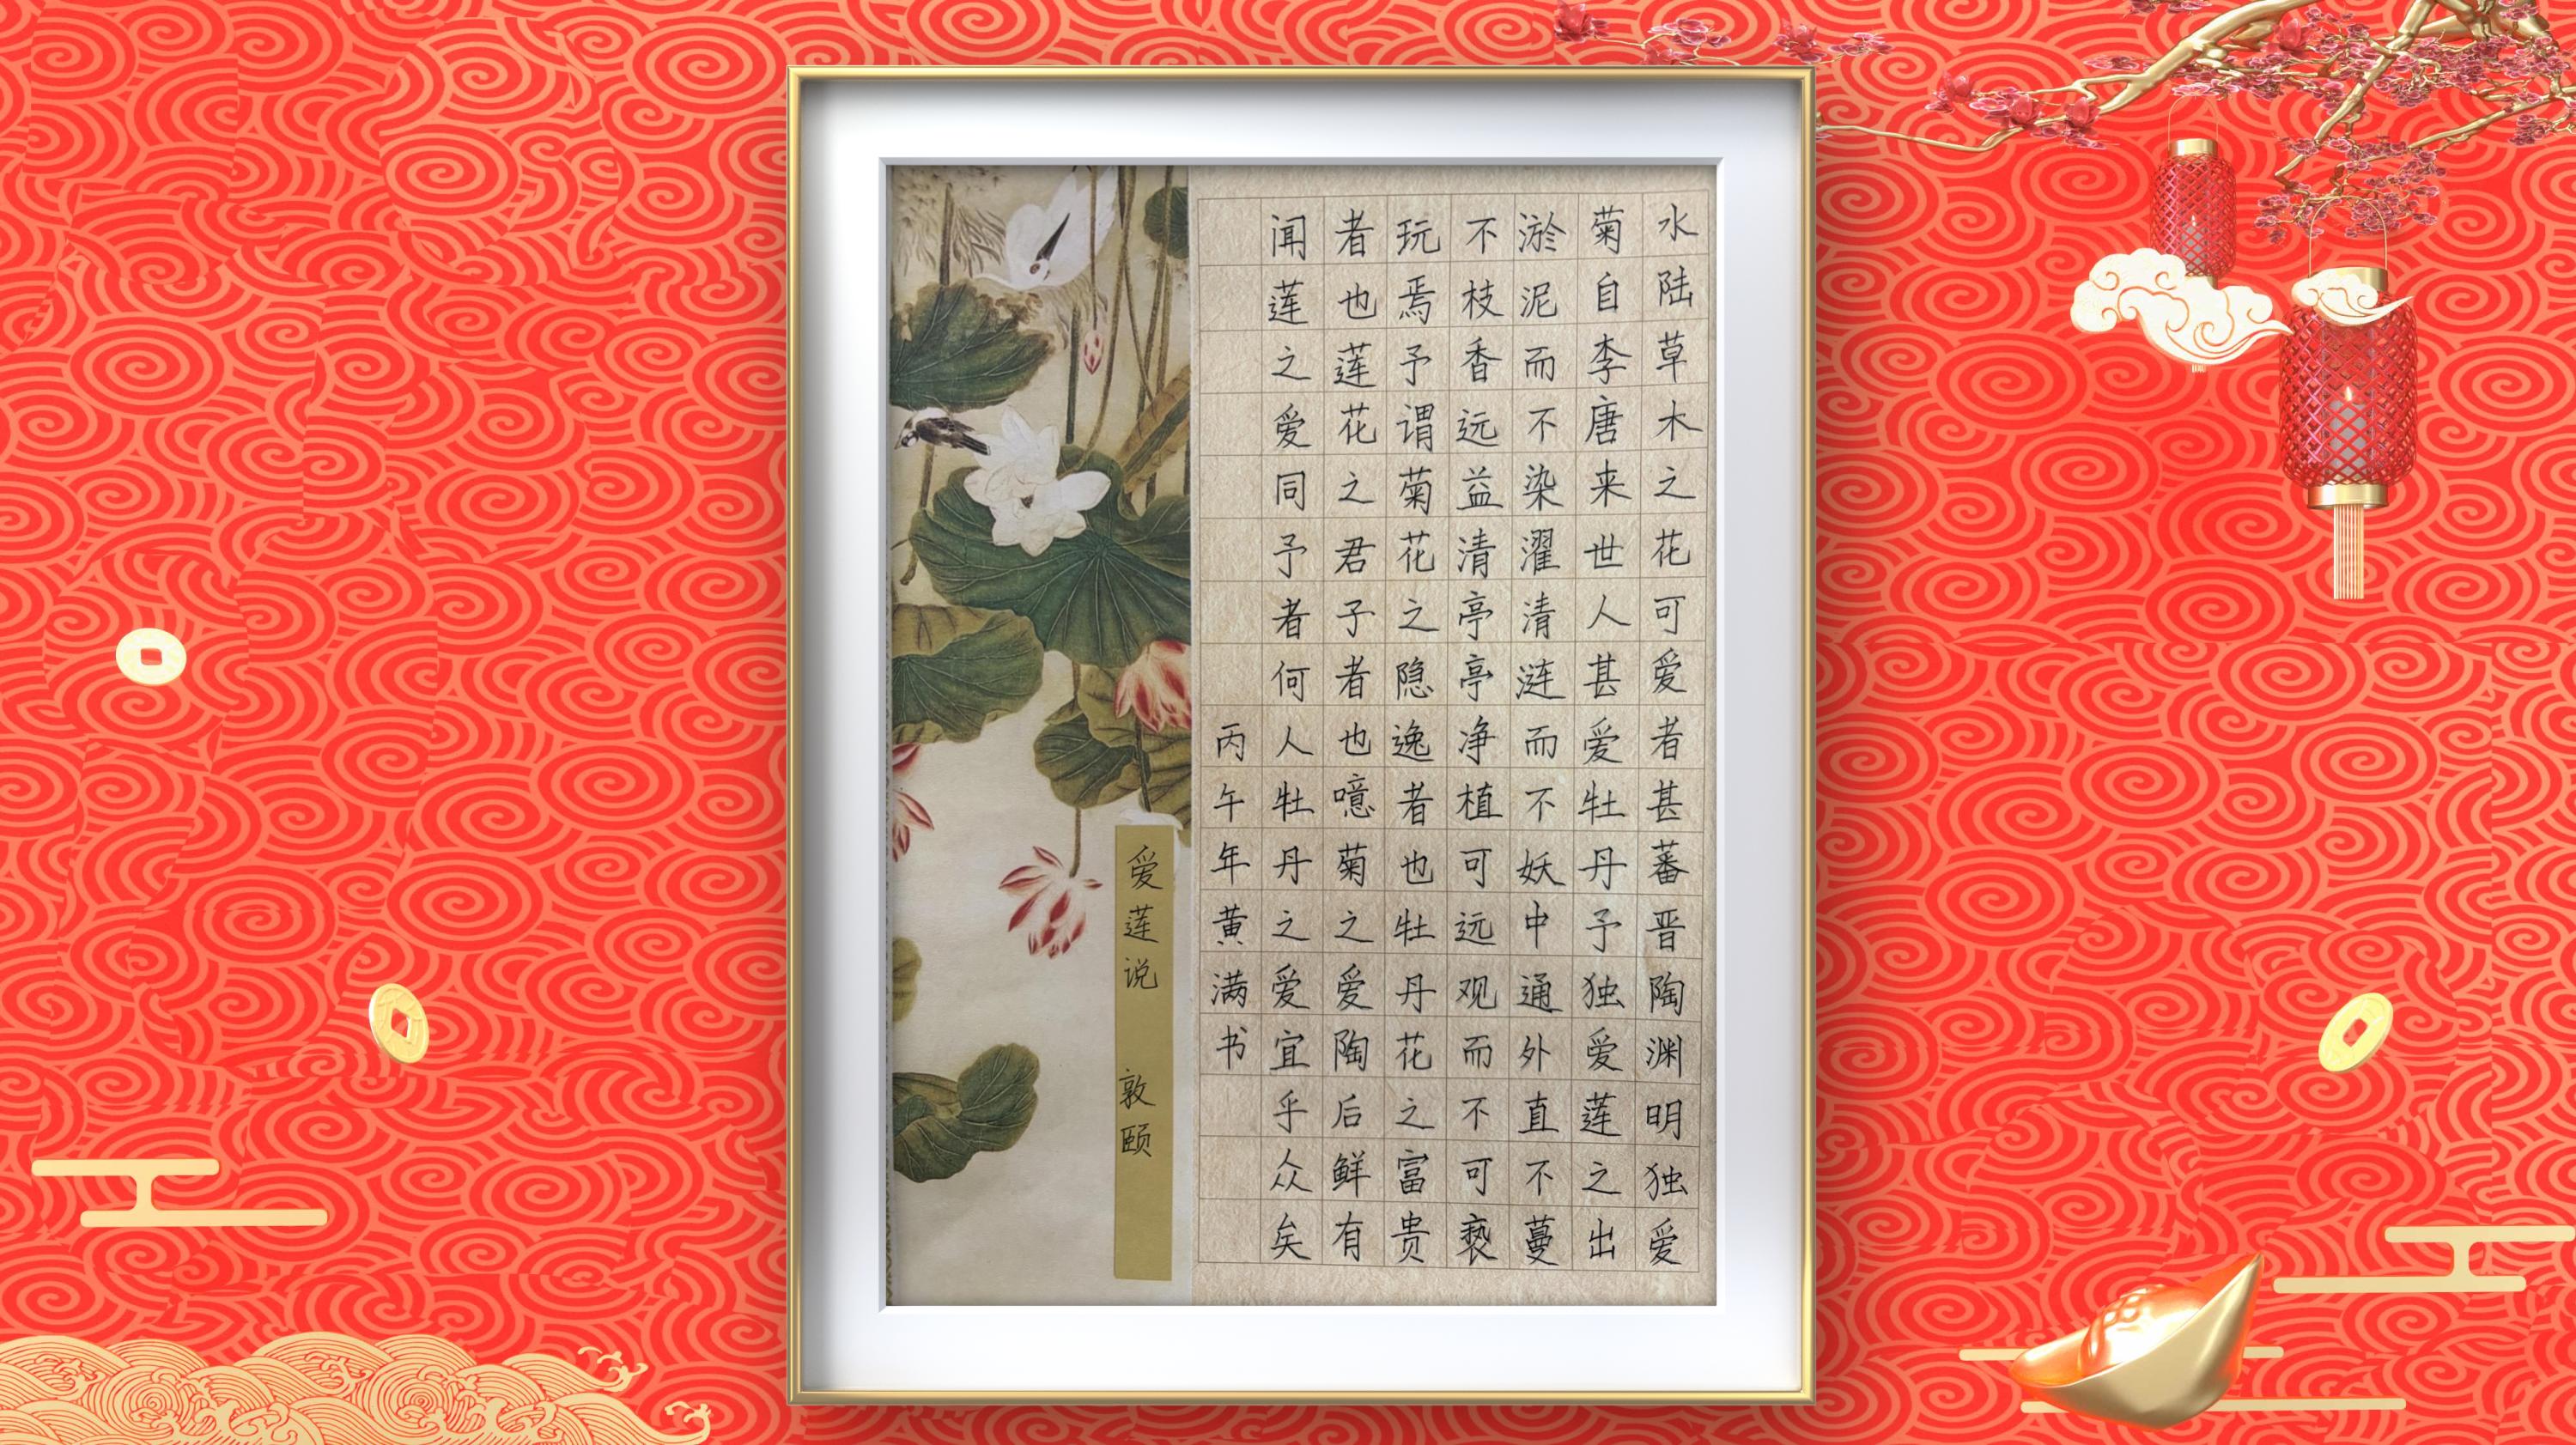 水陆草木之花可爱者甚蕃晋陶渊明独爱
菊自李唐来世人甚爱牡丹予独爱莲之出
淤泥而不染濯清涟而不妖中通外直不蔓
不枝香远益清亭亭净植可远观而不可亵
玩焉予谓菊花之隐逸者也牡丹花之富贵
者也莲花之君子者也噫菊之爱陶后鲜有
闻莲之爱同予者何人牡丹之爱宜乎众矣
丙午年黄满书
爱莲说 敦颐